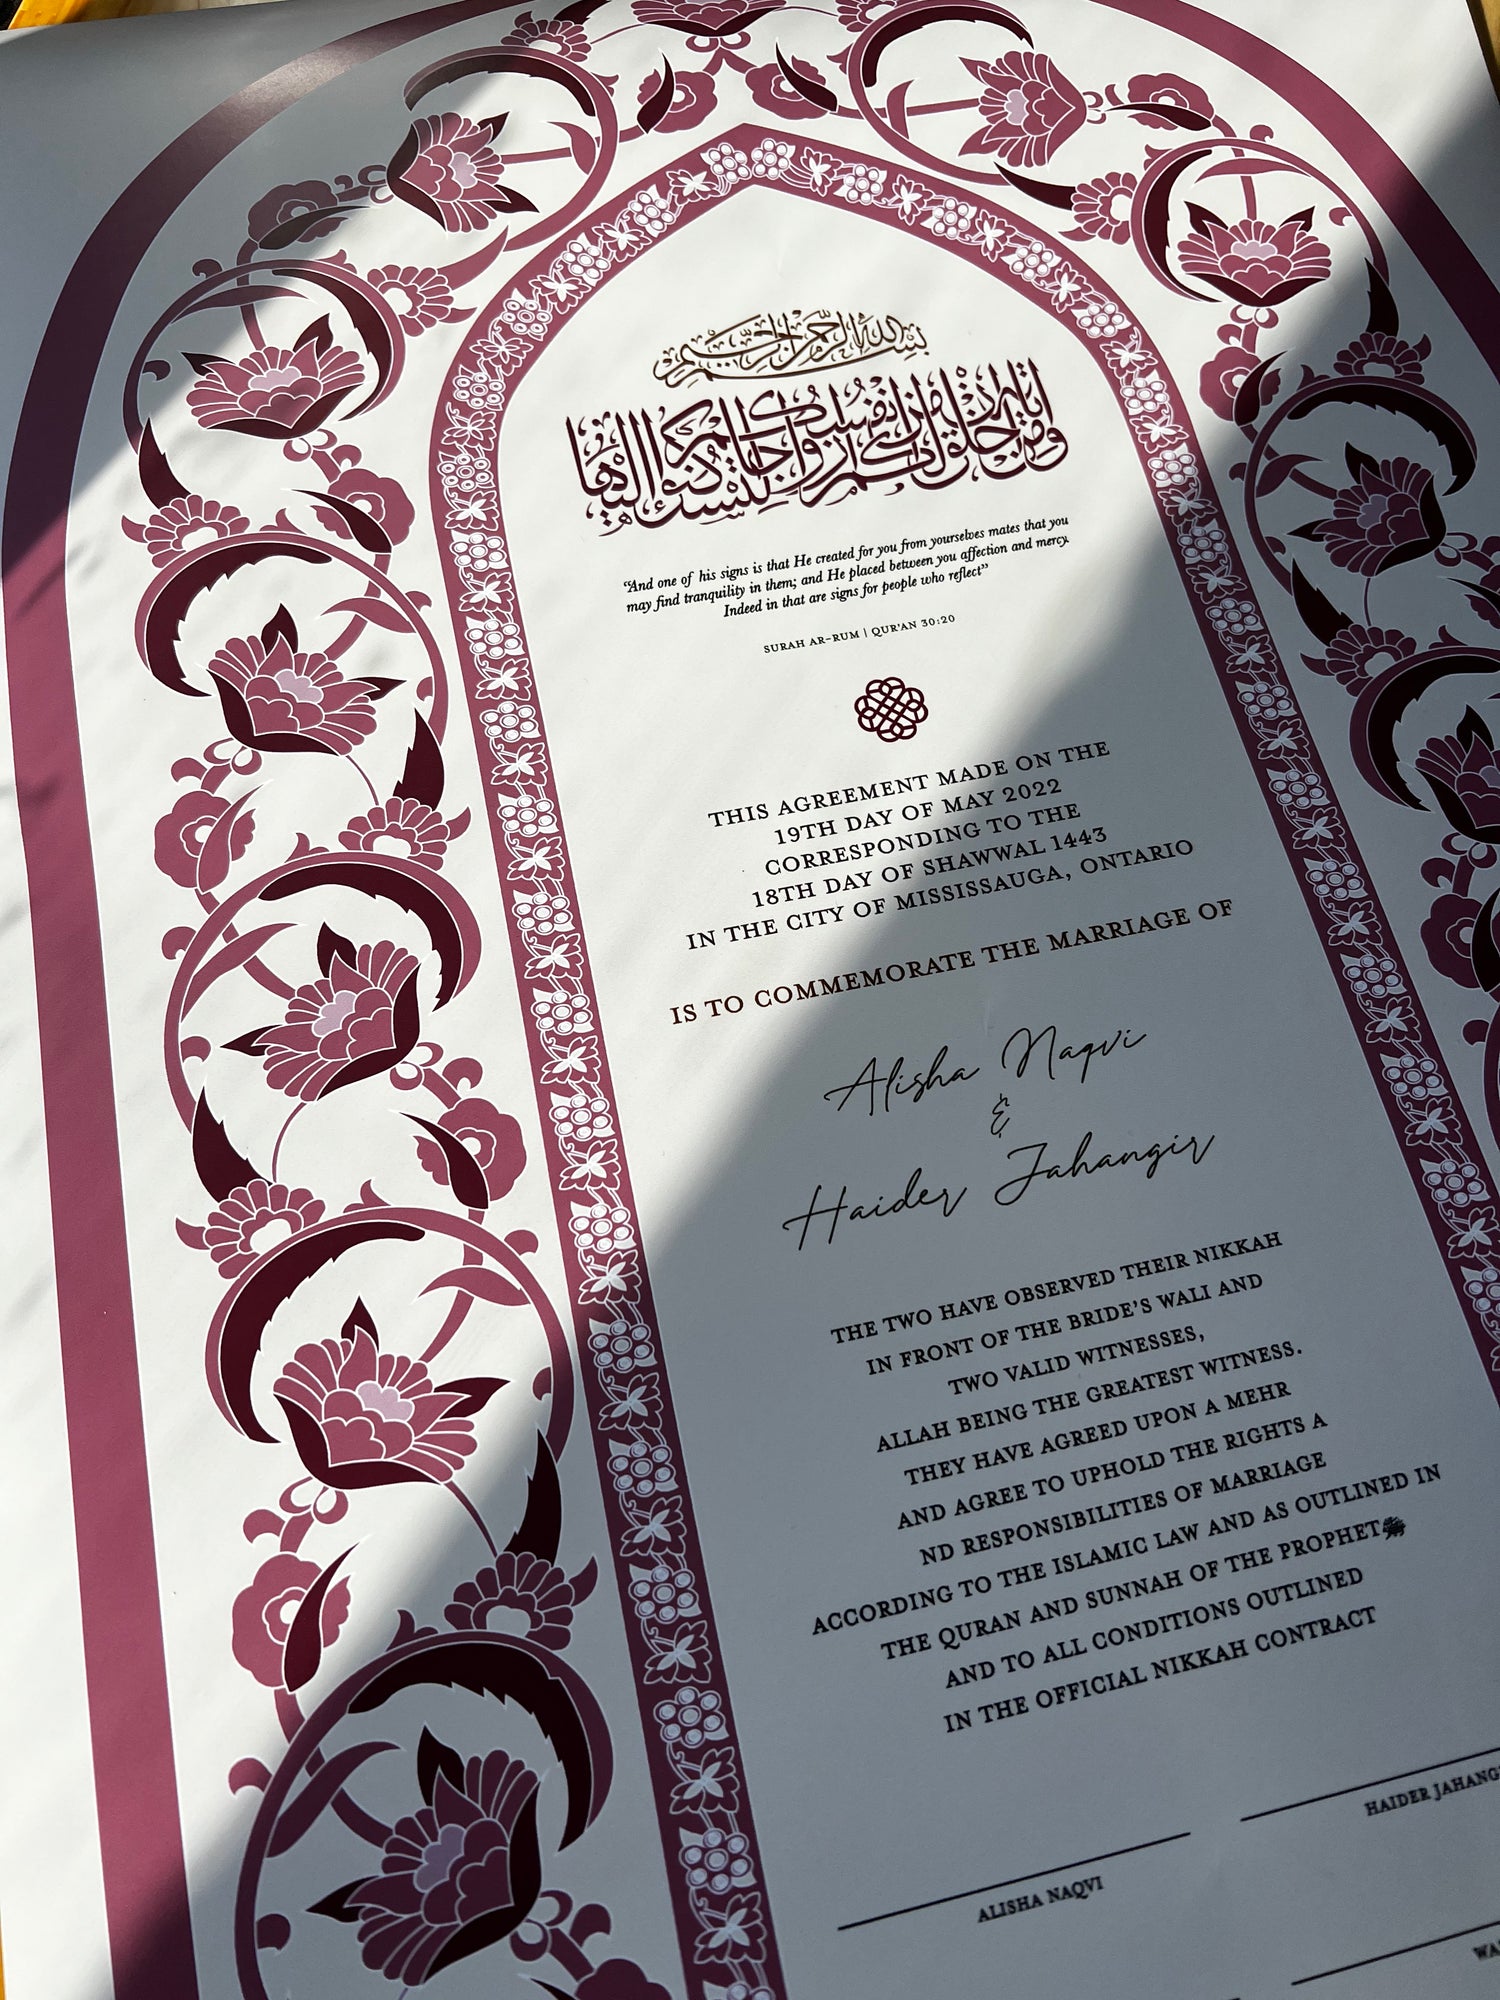 بسم الله الرحمن الرحيم
ومن آياته أن خلق لكم من أنفسكم أزواجا لتسكنوا إليها
“And one of his signs is that He created for you from yourselves mates that you
may find tranquility in them; and He placed between you affection and mercy.
Indeed in that are signs for people who reflect”
SURAH AR-RUM | QUR'AN 30:20
THIS AGREEMENT MADE ON THE
19TH DAY OF MAY 2022
CORRESPONDING TO THE
18TH DAY OF SHAWWAL 1443
IN THE CITY OF MISSISSAUGA, ONTARIO
IS TO COMMEMORATE THE MARRIAGE OF
Alisha Naqvi
&
Haider Jahangir
THE TWO HAVE OBSERVED THEIR NIKKAH
IN FRONT OF THE BRIDE'S WALI AND
TWO VALID WITNESSES,
ALLAH BEING THE GREATEST WITNESS.
THEY HAVE AGREED UPON A MEHR
AND AGREE TO UPHOLD THE RIGHTS A
ND RESPONSIBILITIES OF MARRIAGE
ACCORDING TO THE ISLAMIC LAW AND AS OUTLINED IN
THE QURAN AND SUNNAH OF THE PROPHETﷺ
AND TO ALL CONDITIONS OUTLINED
IN THE OFFICIAL NIKKAH CONTRACT
HAIDER JAHANG
ALISHA NAQVI
WA